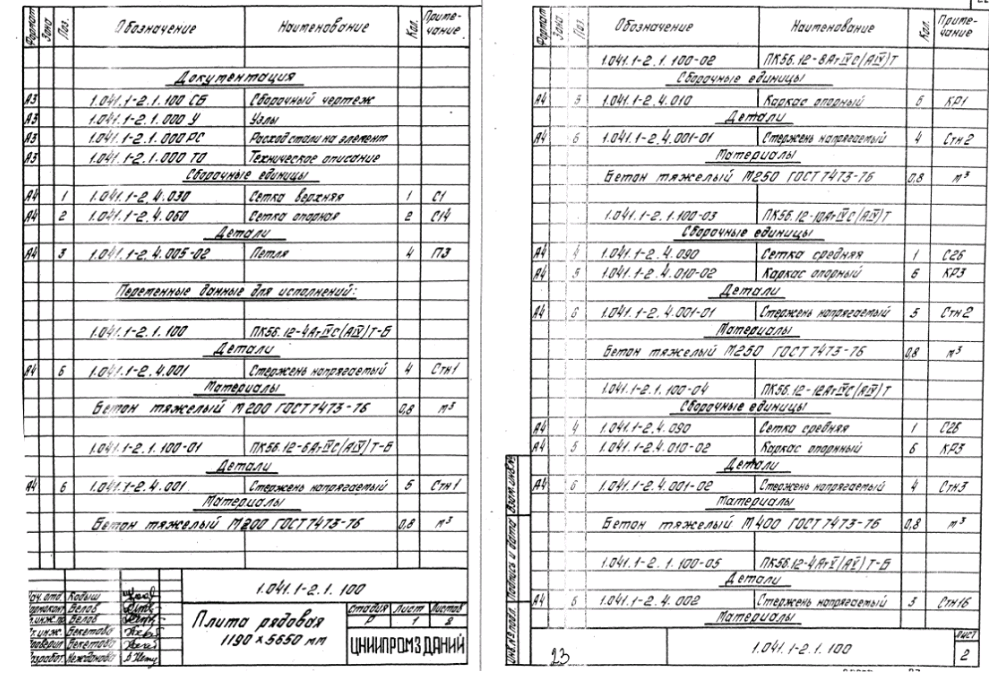 Формат Зона Поз. Обозначение Наименование Кол. Приме-чание
Документация
А3 1.041.1-2.1.100 СБ Сборочный чертеж
А3 1.041.1-2.1.000 У Узлы
А3 1.041.1-2.1.000 РС Расход стали на элемент
А3 1.041.1-2.1.000 ТО Техническое описание
Сборочные единицы
А4 1 1.041.1-2.4.030 Сетка верхняя 1 С1
А4 2 1.041.1-2.4.060 Сетка опорная 2 С14
Детали
А4 3 1.041.1-2.4.005-02 Петля 4 П3
Переменные данные для исполнений:
1.041.1-2.1.100 ПК56.12-4АтIVС(АIV)Т-Б
Детали
А4 6 1.041.1-2.4.001 Стержень напрягаемый 4 Стн1
Материалы
Бетон тяжелый М200 ГОСТ 7473-76 0,8 м³
1.041.1-2.1.100-01 ПК56.12-6АтIVС(АIV)Т-Б
Детали
А4 6 1.041.1-2.4.001 Стержень напрягаемый 5 Стн1
Материалы
Бетон тяжелый М200 ГОСТ 7473-76 0,8 м³
1.041.1-2.1.100
Нач. отд. Кодыш
Нормоконт. Белов
Белов
Бекетова
Проверил Бекетова
Разработ.
Плита рядовая
1190×5650 мм
Стадия Лист Листов
Р 1 8
ЦНИИПРОМЗДАНИЙ
Формат Зона Поз. Обозначение Наименование Кол. Приме-чание
1.041.1-2.1.100-02 ПК56.12-8АтIVС(АIV)Т
Сборочные единицы
А4 5 1.041.1-2.4.010 Каркас опорный 6 КР1
Детали
А4 6 1.041.1-2.4.001-01 Стержень напрягаемый 4 Стн2
Материалы
Бетон тяжелый М250 ГОСТ 7473-76 0,8 м³
1.041.1-2.1.100-03 ПК56.12-10АтIVС(АIV)Т
Сборочные единицы
А4 4 1.041.1-2.4.090 Сетка средняя 1 С26
А4 5 1.041.1-2.4.010-02 Каркас опорный 6 КР3
Детали
А4 6 1.041.1-2.4.001-01 Стержень напрягаемый 5 Стн2
Материалы
Бетон тяжелый М250 ГОСТ 7473-76 0,8 м³
1.041.1-2.1.100-04 ПК56.12-12АтIVС(АIV)Т
Сборочные единицы
А4 4 1.041.1-2.4.090 Сетка средняя 1 С26
А4 5 1.041.1-2.4.010-02 Каркас опорный 6 КР3
Детали
А4 6 1.041.1-2.4.001-02 Стержень напрягаемый 4 Стн3
Материалы
Бетон тяжелый М400 ГОСТ 7473-76 0,8 м³
1.041.1-2.1.100-05 ПК56.12-4АтV(АV)Т-Б
Детали
А4 6 1.041.1-2.4.002 Стержень напрягаемый 3 Стн16
Материалы
Инв.№ подл. Подпись и дата Взам.инв.№
23
1.041.1-2.1.100
Лист
2